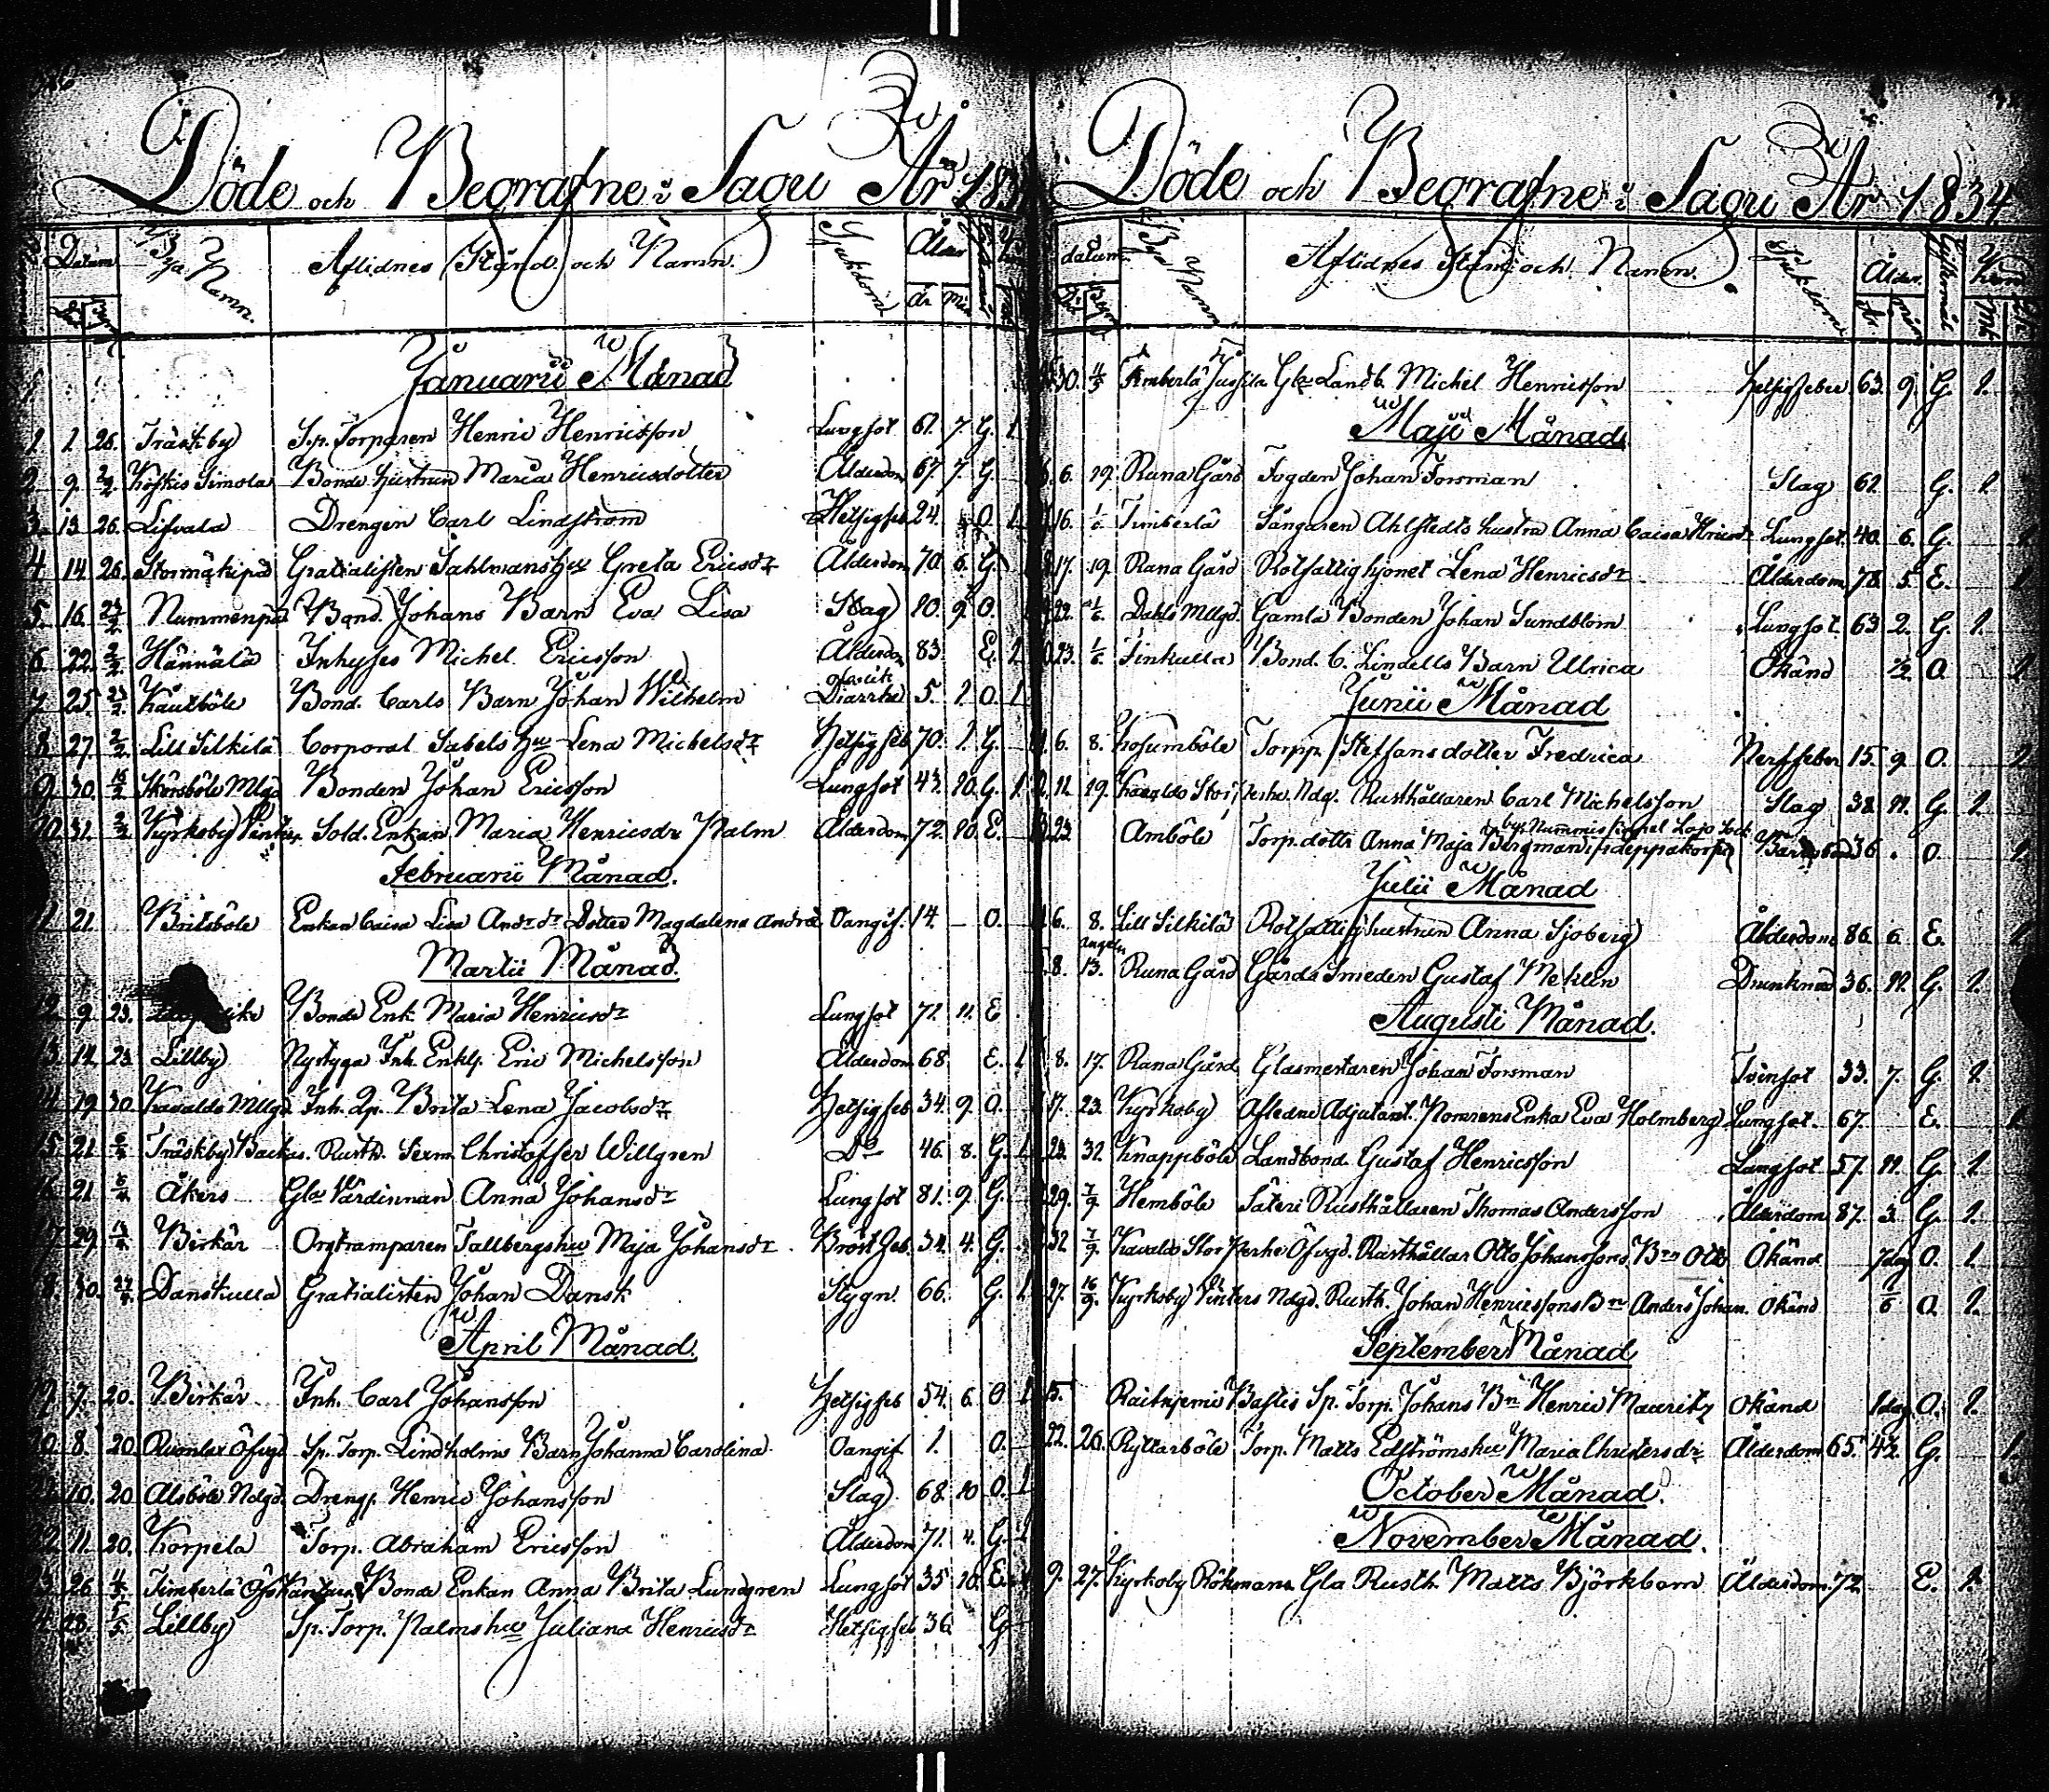 Döde och Begrafne i Sagu År 1834
Datum Bya Namn. Aflidnes Stånd och Namn. Sjukdom Ålder
år Mån
Januarii Månad
1 1 26. Träskby Sp. Torparen Henric Henricsson Lungsot 61. 7. G. 1
2 9. 2/2 Koskis Simola Bonde hustrun Maria Henricsdotter Ålderdom 67. 7. G
3. 13 26. Lifvala Drengen Carl Lindström Hetsigfeb 24. O. 1
4 14 26. Gratialisten Sahlmans hu Greta Ericsdr Ålderdom 70. 6. G.
5. 16. 23/2 Nummenpä Bond. Johans Barn Eva Lisa Slag 10. 9. O.
6. 22. 2/2 Hännälä Inhyses Michel Ericsson Ålderdom 83. E. 1
7 25. 23/2 Kautböle Bond. Carls Barn Johan Wilhelm Diarrhe 5. 1 O. 1
8 27. 2/2 Lill Silkilä Corporal Sabels hu Lena Michelsdr Hetsigfeb 70. 1. G.
9 30. 16/2 Skärsböle Mlgd Bonden Johan Ericsson Lungsot 43. 10. G. 1
10 31. 2/2 Kyrkoby Sold. Enkan Maria Henricsdr Palm Ålderdom 72. 10. E.
Februarii Månad.
11 21. Britsböle Enkan Caisa Lisa Andrdr Dotter Magdalena Andrä Oangif. 14. – O.
Martii Månad.
12 9 23. Bonde Enk. Maria Henricsdr Lungsot 72 11. E
13 14 23 Lillby Nystyga Inh. Enkl. Eric Michelsson Ålderdom 68 E. 1
14 19 30 Kavaldo Mllgd Inh. Qp. Brita Lena Jacobsdr Hetsigfeb 34. 9. O.
15 21 6/4 Träskby Backas. Rusth. Christoffer Willgren Do 46. 8. G. 1
16. 21 6/4 Åkers Gla Värdinnan Anna Johansdr Lungsot 81. 9. G.
17 29 Birkär Orgtramparen Tallbergs hu Maja Johansdr Bröst feb. 34. 4. G.
18. 30. 27/4 Danskulla Gratialisten Johan Dansk Stygn. 66. G. 1
April Månad.
19 7. 20. Birkär Inh. Carl Johansson Hetsigfeb 54. 6. O 1
20 8. 20 Rumlax Öfvgd Sp. Torp. Lindholms Barn Johanna Carolina Oangif. 1. O.
21 10. 20 Alsböle Ndgd. Drengs. Henric Johansson Slag. 68. 10 O. 1
22 11. 20. Korpela Torp. Abraham Ericsson Ålderdom 71. 4. G. 1
23 26 4/5 Timberlä Bonde Enkan Anna Brita Lundgren Lungsot 35 10. E.
24. 28. 4/5 Lillby Sp. Torp. Palms hu Juliana Henricsdr Hetsigfeb 36. G
Döde och Begrafne i Sagu År 1834
datum Bya Namn Aflidnes Stånd och Namn. Sjukdom Ålder. Giftermål Kön
År Mån Mk Qk
30. 4/5 Timberlä Jussila Gla Landb. Michel Henricsson Hetsigfeber 63. 9. G. 1.
Maji Månad
6. 19. Runa Gård Fogden Johan Forsman Slag 62. G. 1
16. 1/6 Timberlä Sångaren Ahlstedts hustru Anna Caisa Lungsot. 40. 6. G. 1
17. 19. Runa Gård Rotfattighjonet Lena Henricsdr Ålderdom. 78. 5. E. 1
22. 1/6 Dahls Mllgd. Gamla Bonden Johan Sundblom Lungsot. 63 2. G. 1.
23. 1/6 Finkulla Bond. C. Lindells Barn Ulrica Okänd 1/2. O. 1
Junii Månad
6. 8. Kosumböle Torpp. Steffans dotter Fredrica Nerffeber 15. 9 O. 1
12. 19. Kavaldo Stor Ndg. Rusthållaren Carl Michelsson Slag 38. 11. G. 1.
23. Amböle Torp. dottr Anna Maja Bergman 36. O 1.
Julii Månad
6. 8. Lill Silkilä Rotfattig hustrun Anna Sjöberg Ålderdom 86. 6. E. 1
8. 13. Runa Gård Gårds Smeden Gustaf Drunknad 36. 11. G. 1.
Augusti Månad.
8. 17. Runa Gård Glasmestaren Johan Forsman Tvinsot 33. 7. G. 1.
17. 23. Kyrkoby Afledne Adjutant. Enka Eva Holmberg Lungsot. 67. E. 1
23. 31. Knappböle Landbond. Gustaf Henricsson Lungsot 57. 11. G. 1.
29. 7/9. Hemböle Säteri Rusthållaren Thomas Andersson Ålderdom 87. 3. G. 1.
31 7/9. Kavaldo Stor Öfvgd. Rusthållar Otto Johanssons Bn Otto Okänd 7 dag O. 1
27. 16/9. Kyrkoby Vinters Ndgd. Rusth. Johan Henricssons Bn Anders Johan. Okänd 1/6 O. 1.
September Månad
15. Raitniemi Bastis Sp. Torp. Johans Bn Henric Mauritz Okänd 1 dag. O. 1.
22. 26. Ryttarböle Torp. Matts Edströms hu Maria Christersdr Ålderdom 65. 4 1/2. G. 1.
October Månad.
November Månad.
9. 27. Kyrkoby Rökmans Gla Rusth. Matts Björkbom Ålderdom. 72. E. 1.